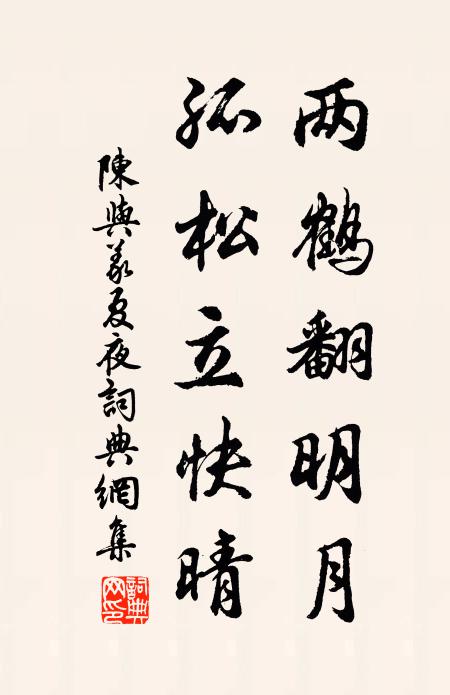 两鹤翻明月
孤松立快晴
陳與義夏夜詞典網集
詞典网印